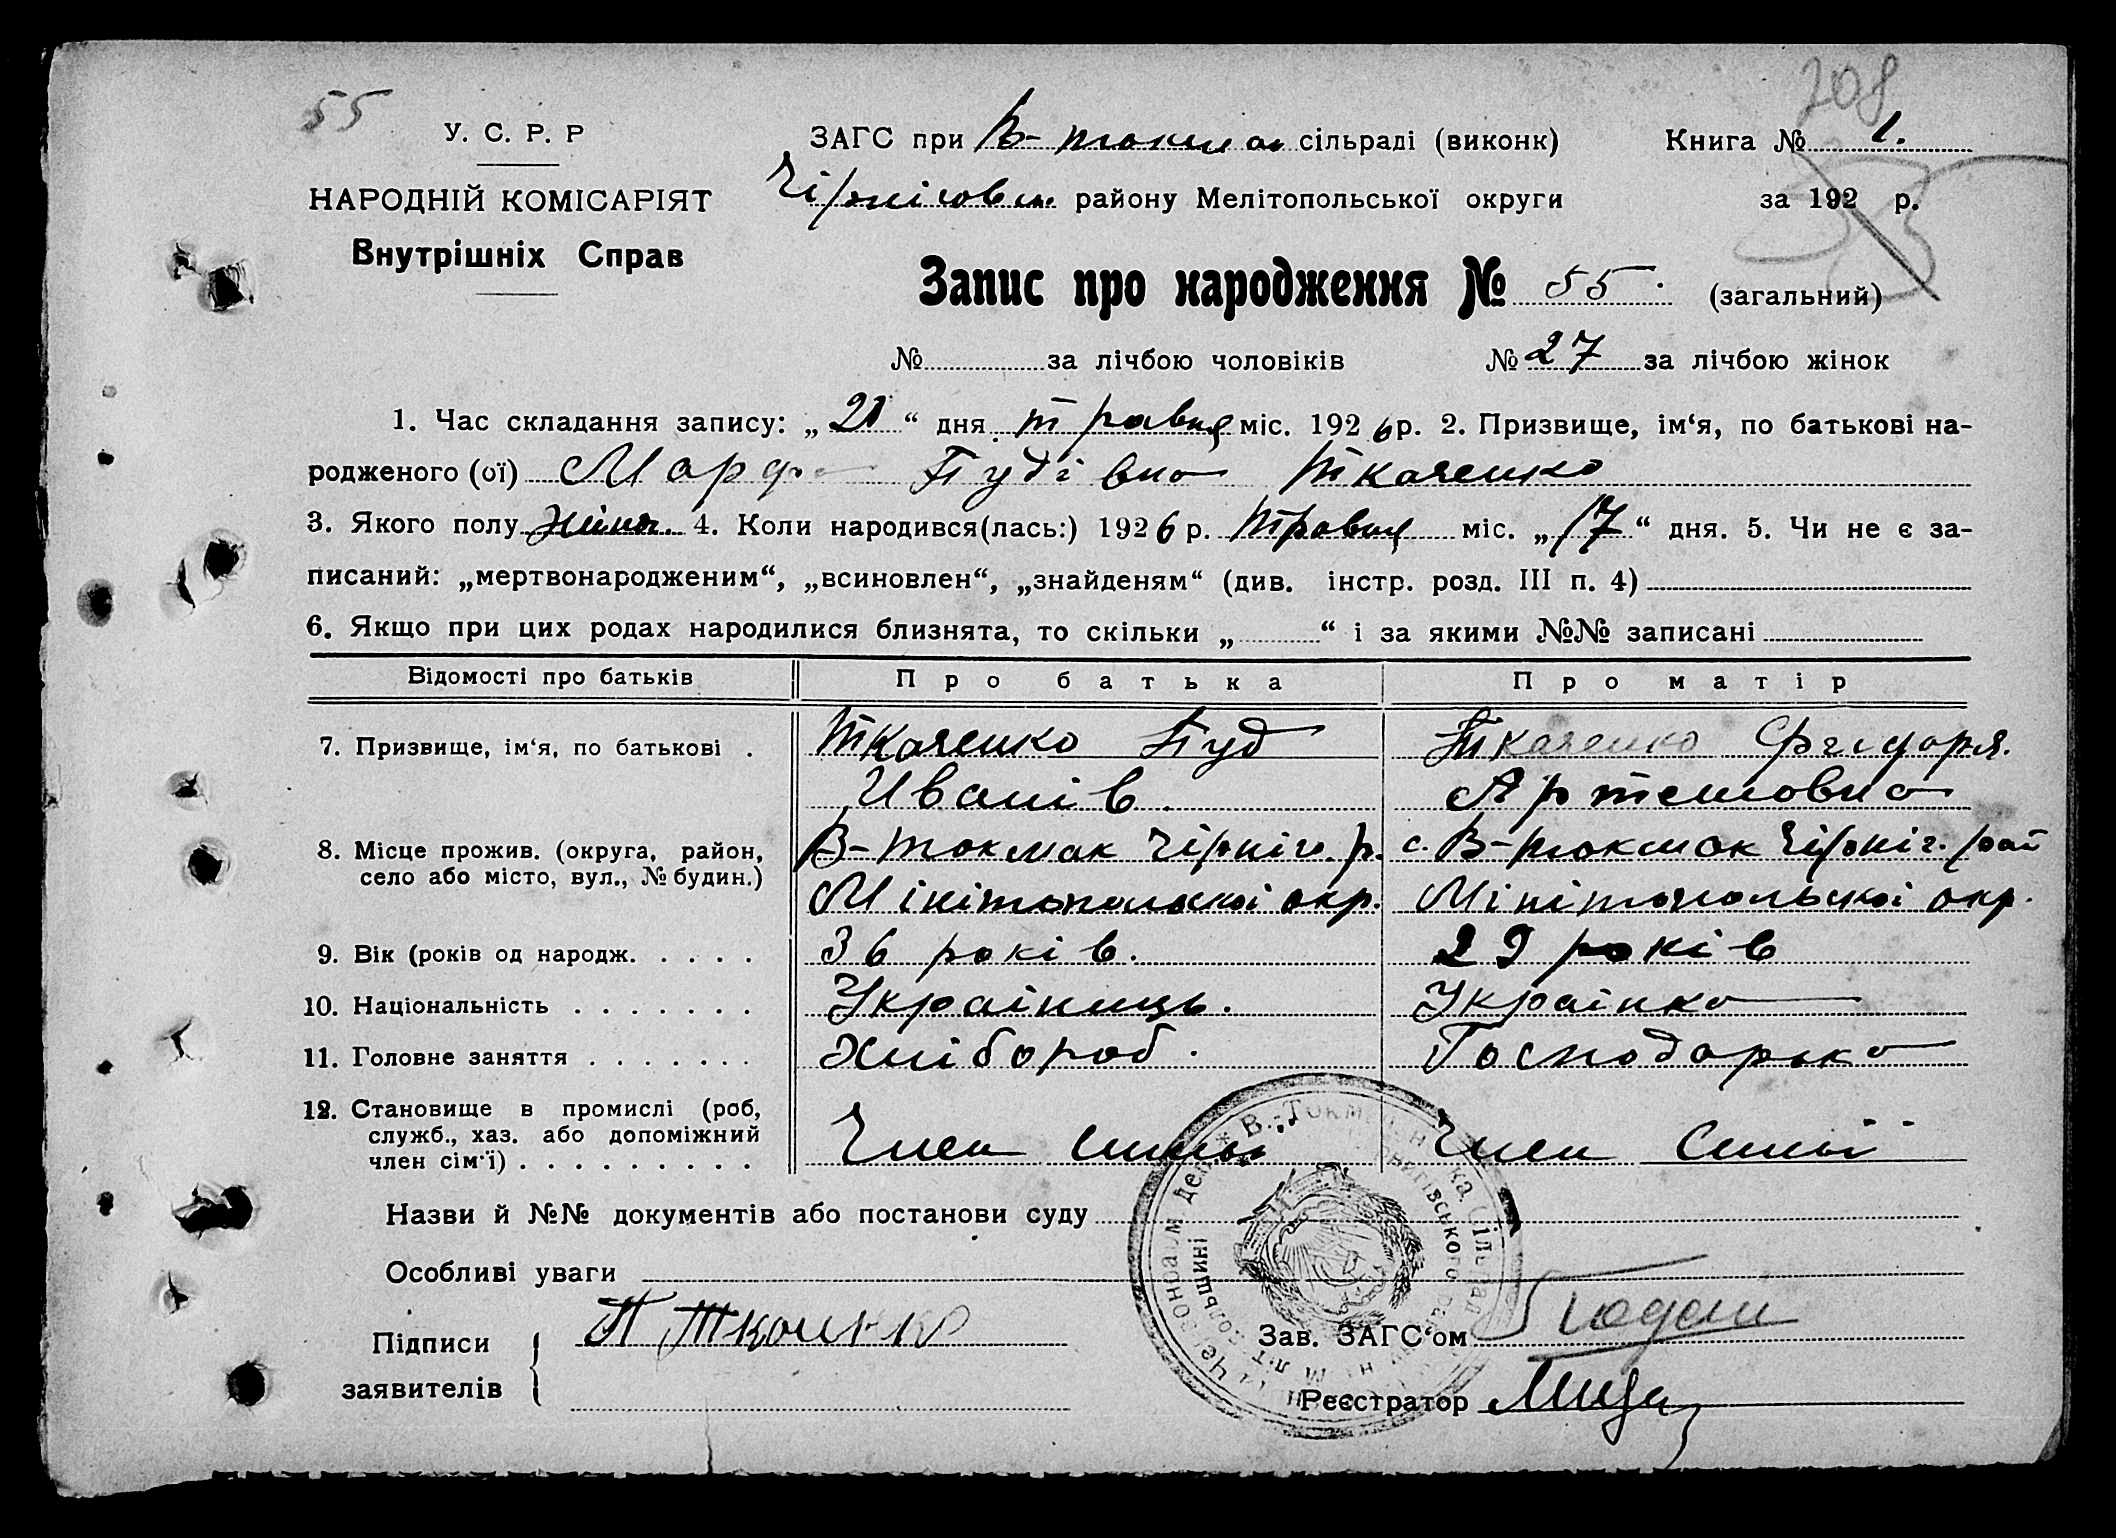 55 208
У. С. Р. Р
ЗАГС при В-токма сільраді (виконк) Книга № 1.
НАРОДНІЙ КОМІСАРІЯТ
Чірнігов району Мелітопольської округи за 192 р.
Внутрішніх Справ
Запис про народження № 55. (загальний)
№ за лічбою чоловіків № 27 за лічбою жінок
1. Час складання запису: „21“ дня травня міс. 1926 р. 2. Призвище, ім‘я, по батькові на-
родженого (ої) Марфа Пудівна Ткаченко
3. Якого полу жіно. 4. Коли народився(лась:) 1926 р. Травня міс. „17“ дня. 5. Чи не є за-
писаний: „мертвонародженим“, „всиновлен“, „знайденям“ (див. інстр. розд. III п. 4)
6. Якщо при цих родах народилися близнята, то скільки „ “ і за якими №№ записані
Відомості про батьків Про батька Про матір
7. Призвище, ім‘я, по батькові . Ткаченко Пуд Ткаченко
Иванів. Артемовна
8. Місце прожив. (округа, район, В-токмак Чірніг. р. с. В-токмак Чірніг. рай
село або місто, вул., № будин.) Мінітопольскої окр. Мінітопольскої окр.
9. Вік (років од народж. . . . . 36 років. 29 років
10. Національність . . . . . . . Українць. Українка
11. Головне заняття . . . . . . . Хлібороб. Господарька
12. Становище в промислі (роб,
служб., хаз. або допоміжний Член Член сімьї
член сім‘ї) . . . . . . . . .
Назви й №№ документів або постанови суду
Особливі уваги
Підписи П Ткаченко Зав. ЗАГС‘ом
заявителів Реєстратор